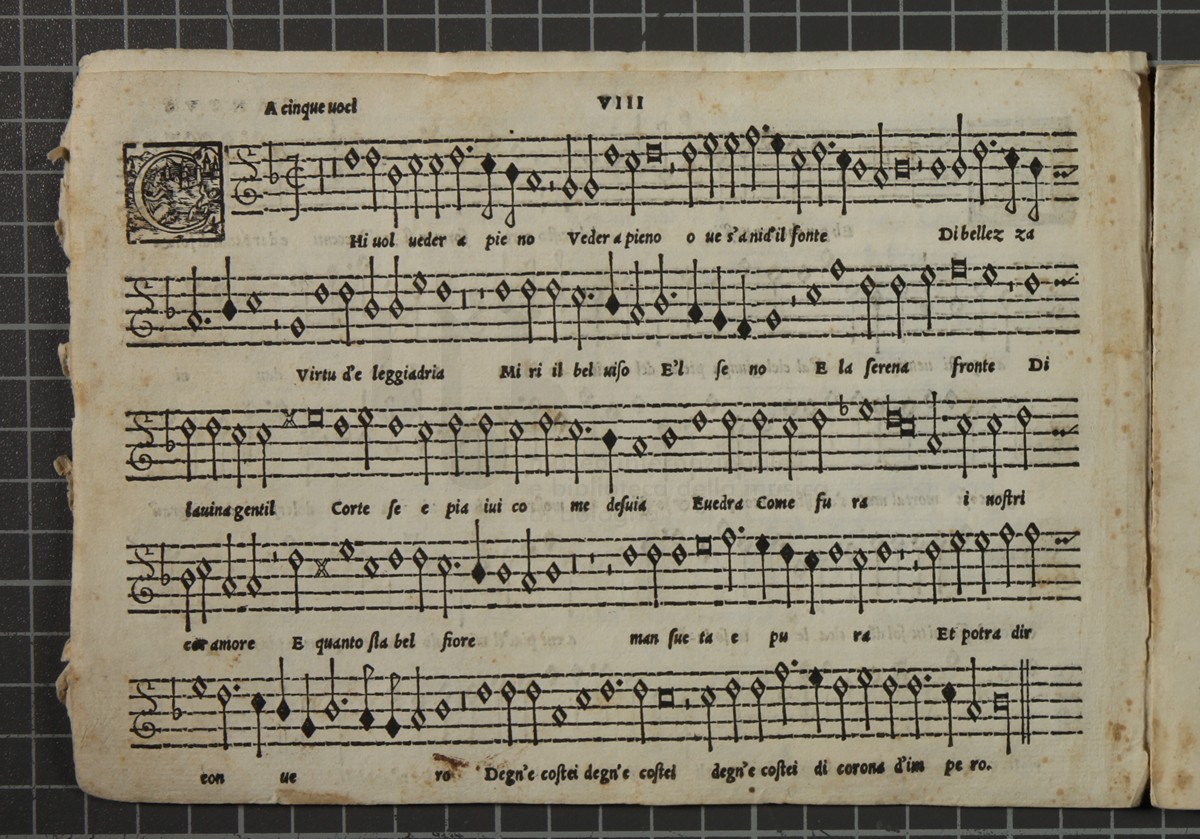 A cinque uoci
VIII
CHi uol ueder a pie no Veder a pieno o ue s'anid'il fonte Di bellez za
Virtu d'e leggiadria Mi ri il bel uiso E'l se no E la serena fronte Di
lauina gentil Corte se e pia iui co me desuia Euedra Come fu ra i nostri
cor amore E quanto sla bel fiore man sue ta e pu ra Et potra dir
con ue ro Degn'e costei degn'e costei degn'e costei di corona d'im pe ro.